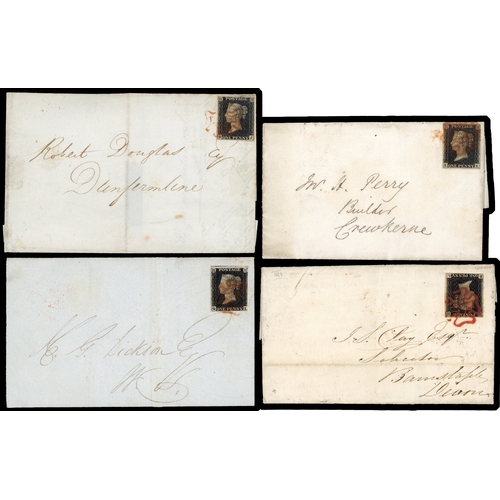 POSTAGE
ONE PENNY
Robert Douglas Esqr
Dunfermline
POSTAGE
ONE PENNY
Mr. H. Perry
Builder
Crewkerne
POSTAGE
ONE PENNY
H. G. Dickson Esq
W. S.
ONE PENNY
J. S. Clay Esqr
Solicitor
Barnstaple
Devon